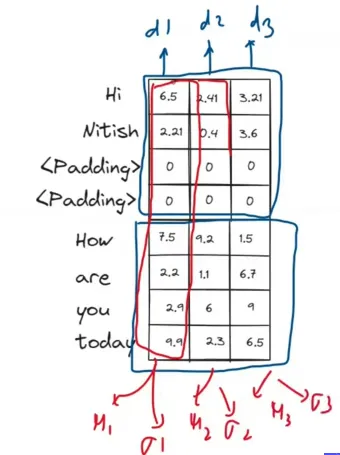 d1 d2 d3
Hi 6.5 2.41 3.21
Nitish 2.21 0.4 3.6
<Padding> 0 0 0
<Padding> 0 0 0
How 7.5 9.2 1.5
are 2.2 1.1 6.7
you 2.9 6 9
today 9.9 2.3 6.5
μ1 σ1 μ2 σ2 μ3 σ3